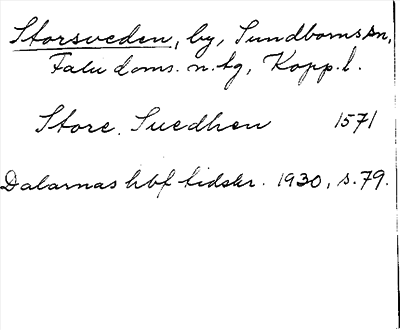 Storsveden, by, Sundborns sn,
Falu doms. n. tg, Kopp. l.
Store. Suedhen 1571
Dalarnas hbf tidskr. 1930, s. 79.